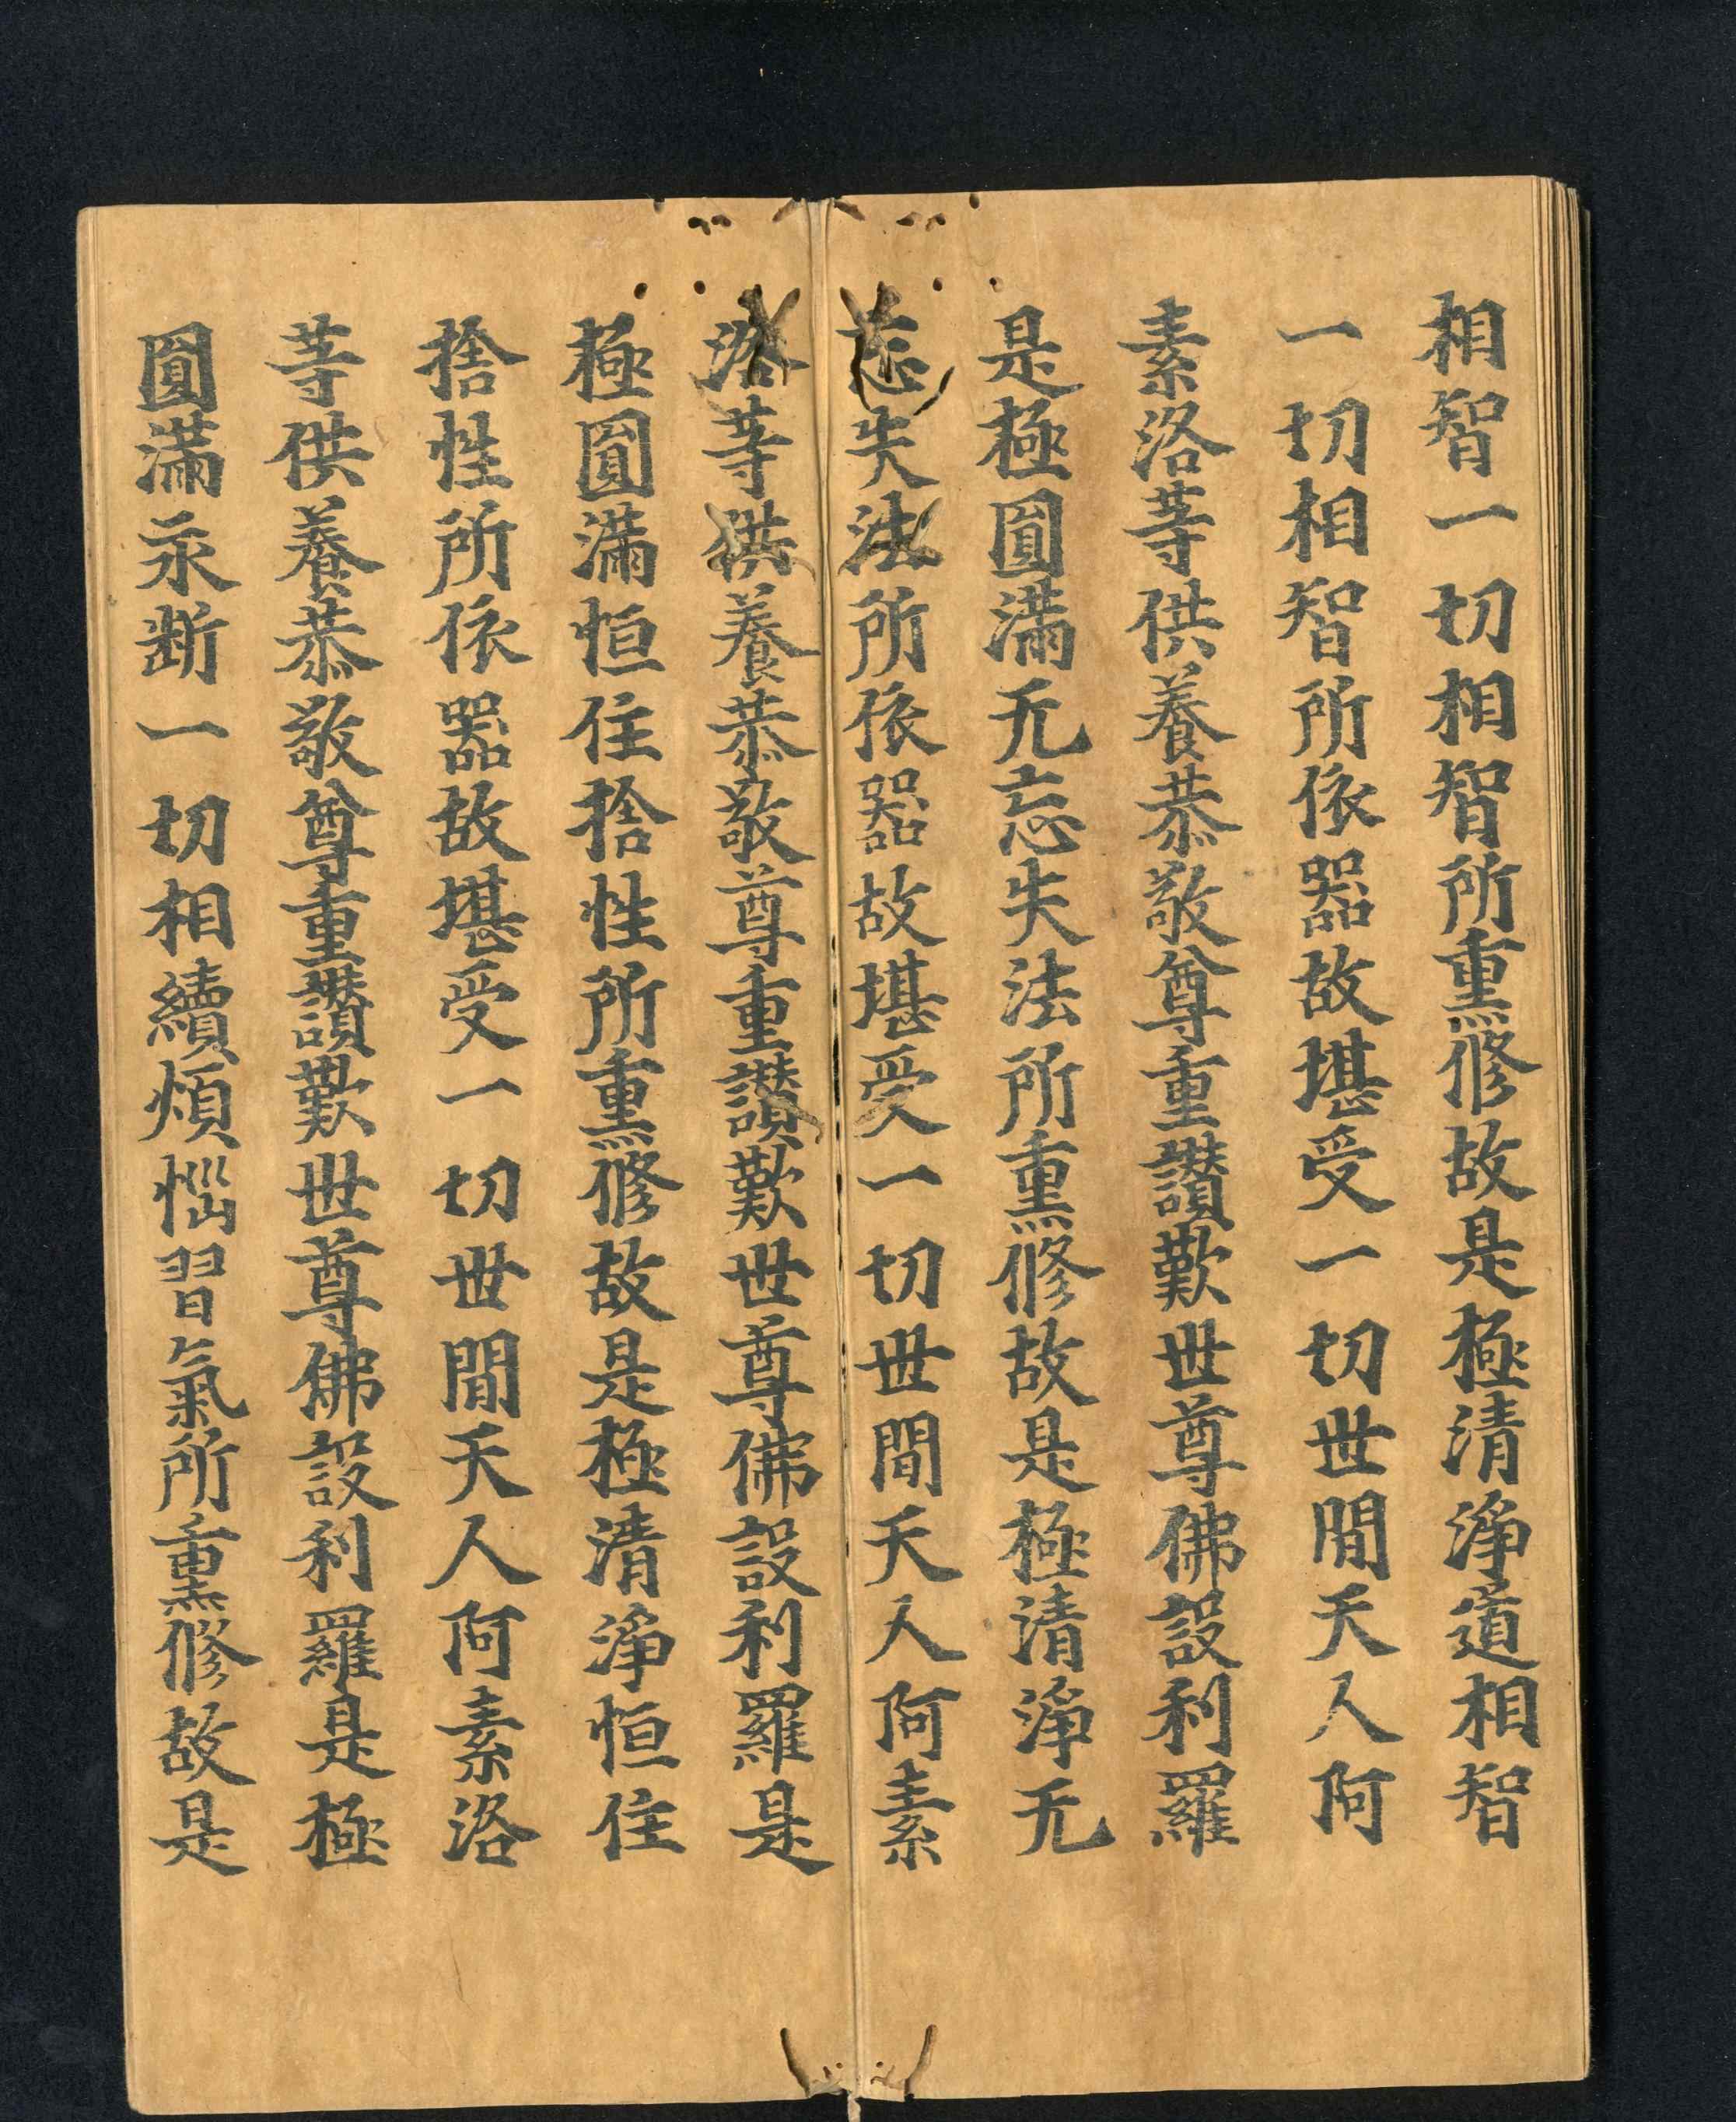 相智一切相智所熏修故是極清淨道相智
一切相智所依器故堪受一切世間天人阿
素洛等供養恭敬尊重讃歎世尊佛設利羅
是極圓滿无忘失法所熏修故是極清淨无
忘失法所依器故堪受一切世間天人阿素
洛等供養恭敬尊重讃歎世尊佛設利羅是
極圓滿恒住捨性所熏修故是極清淨恒住
捨性所依器故堪受一切世間天人阿素洛
等供養恭敬尊重讃歎世尊佛設利羅是極
圓滿永断一切相續煩惱習氣所熏修故是